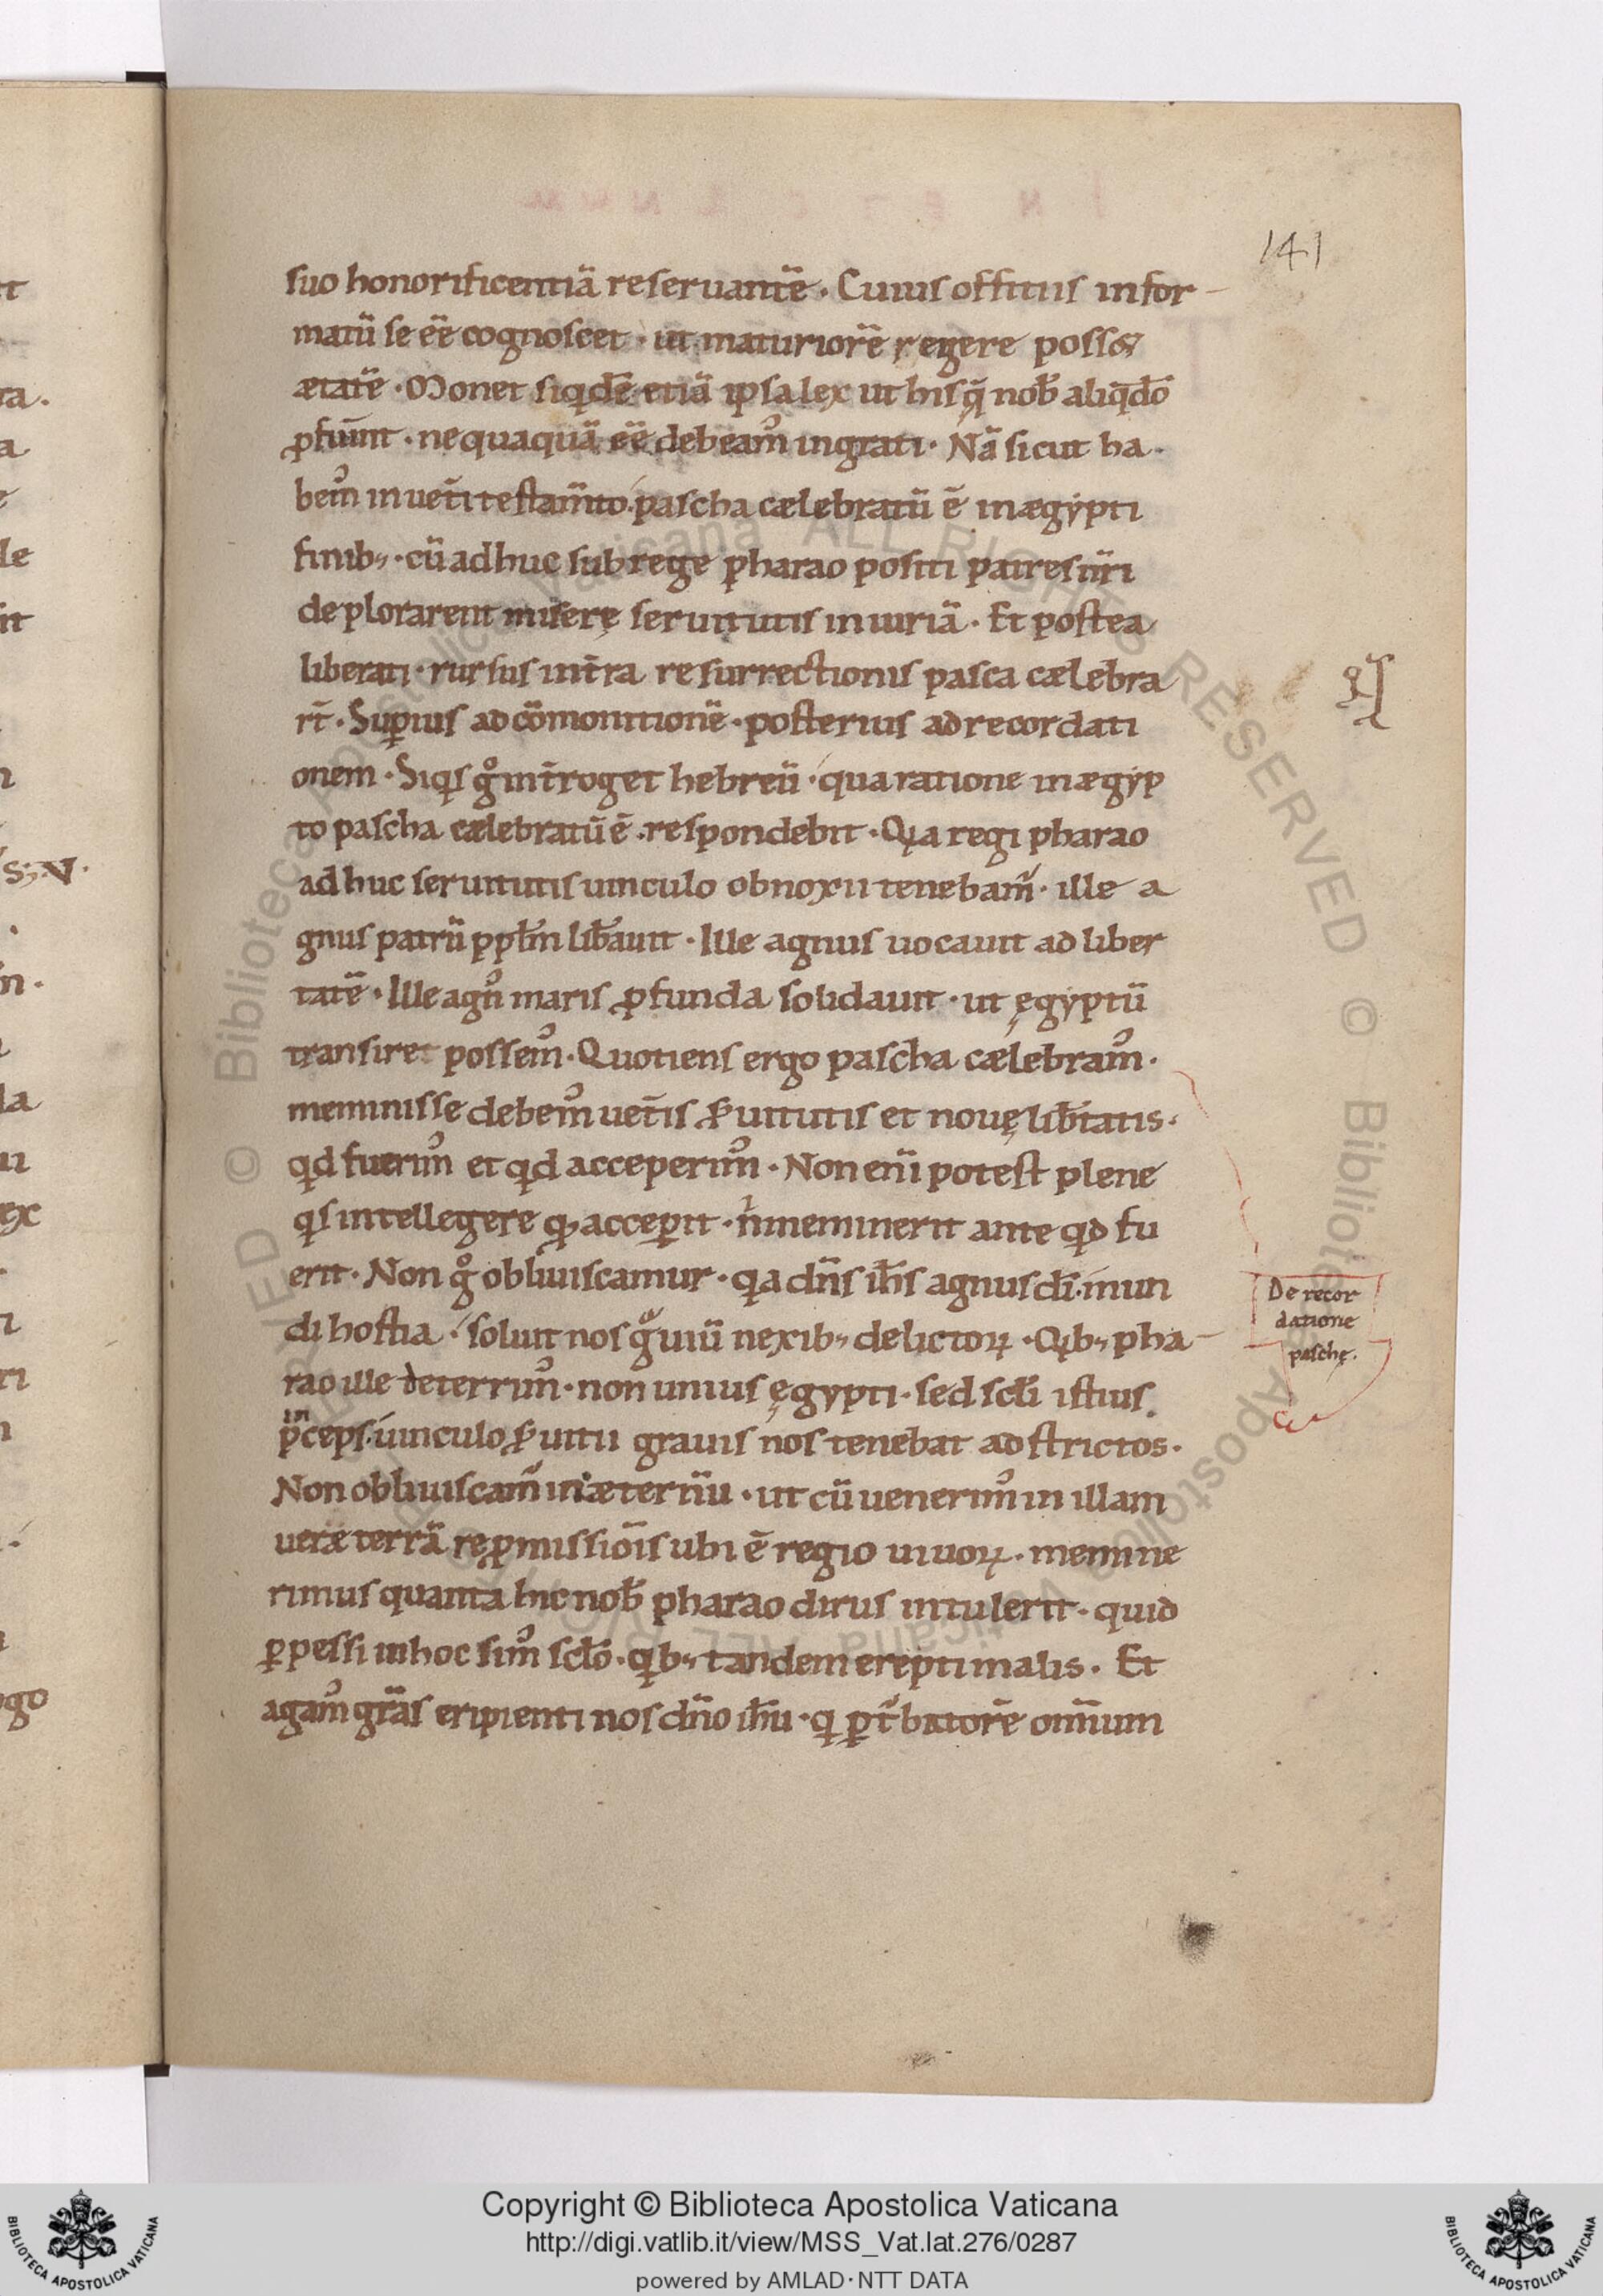 141
suo honorificentiā reseruantē. Cuius offitiis infor-
matū se eē cognoscet · ut maturiorē regere poss&
ætatē · Monet siqidē etiā ipsa lex ut his q̄ nob̄ aliq̄dō
ꝓfuīnt · nequaquā eē debeamꝰ ingrati · Nā sicut ha-
bemꝰ in uet̄i testam̄to · pascha cælebratū ē in ægypti
finib; · cū adhuc sub rege pharao positi patres n̄ri
deplorarent miserę seruitutis iniuriā · Et postea
liberati · rursus int̄ra resurrectionis pasca cælebra
rt̄ · Supius ad cōmonitionē · posterius ad recordati
onem · Siqis gͦ int̄roget hebreū · qua ratione in ægyp
to pascha cælebratū ē · respondebit · Qia regi pharao
adhuc seruitutis uinculo obnoxii tenebam̄ · ille a
gnus patrū ppl̄m lib̄auit · Ille agnus uocauit ad liber
tatē · Ille agnꝰ maris ꝓfunda solidauit · ut ęgyptū
transiret possemꝰ · Quotiens ergo pascha cælebramꝰ ·
meminisse debemꝰ uet̄is seruitutis et nouę lib̄tatis ·
qd fuerimꝰ et qd acceperimꝰ · Non eni potest plene
qis intellegere qd accepit · n̄ meminerit ante qd fu
erit · Non gͦ obliuiscamur · qia dn̄s ih̄s agnus dī · mun
di hostia · soluit nos gͣuiū nexib; delictoꝝ · Qib; pha-
rao ille deterrimꝰ · non unius ęgypti · sed scl̄i istius
p̄inceps · uinculo seruitii grauis nos tenebat adstrictos ·
Non obliuiscam̄ in æternū · ut cū uenerimꝰ in illam
ueræ terrā reꝓmissiōis ubi ē regio uiuoꝝ · memine
rimus quanta hic nob̄ pharao dirus intulerit · quid
ꝑpessi in hoc simꝰ scl̄o · qib; tandem erepti malis · Et
agamꝰ gr̄as eripienti nos dn̄o ih̄u · qi pt̄batorē omnium
De recor
datione
paschę.
Copyright © Biblioteca Apostolica Vaticana
http://digi.vatlib.it/view/MSS_Vat.lat.276/0287
powered by AMLAD·NTT DATA
BIBLIOTECA APOSTOLICA VATICANA
BIBLIOTECA APOSTOLICA VATICANA